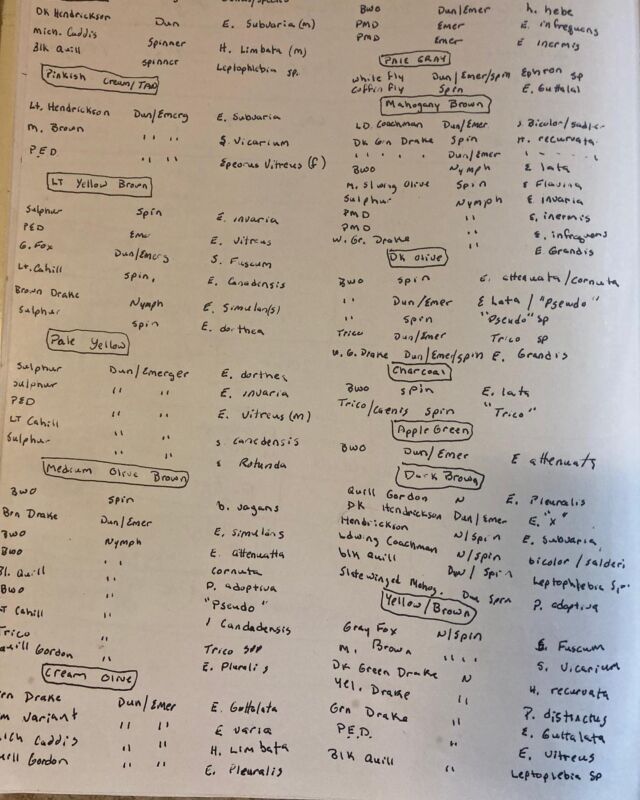 DK Hendrickson Dun E. Subvaria (m)
Mich. Caddis Spinner H. Limbata (m)
Blk Quill spinner Leptophlebia sp.
Pinkish Cream/TAN
Lt. Hendrickson Dun/Emerg E. Subvaria
M. Brown " " S. Vicarium
P.E.D " " Epeorus Vitreus (f)
LT Yellow Brown
Sulphur Spin E. invaria
PED Emer E. Vitreus
G. Fox Dun/Emerg S. Fuscum
Lt. Cahill spin. E. Canadensis
Brown Drake Nymph E. Simulan(s)
Sulphur spin E. dorthea
Pale Yellow
Sulphur Dun/Emerger E. dorthea
Sulphur " " E. invaria
PED " " E. Vitreus (m)
LT Cahill " " S. canedensis
Sulphur " " s Rotunda
Medium Olive Brown
BWO Spin b. vagans
Brn Drake Dun/Emer E. simulans
BWO Nymph E. attenuatta
BWO " cornuta
Bl. Quill " P. adoptiva
BWO " "Pseudo"
LT Cahill " Candadensis
Trico " Trico spp
Quill Gordon E. Pluralis
Cream Olive
rn Drake Dun/Emer E. Guttalata
m variant " " E varia
ich Caddis " " H. Limbata
uill Gordon " " E. Pleuralis
BWO Dun/Emer h. hebe
PMD Emer E. infrequens
PMD Emer E inermis
PALE GRAY
white fly Dun/Emer/spin Ephron sp
Coffin fly Spin E. Guttalal
Mahogany Brown
LD. Coachman Dun/Emer s Bicolor/sadier
DK Grn Drake Spin H. recurvata
" " " Dun/Emer " "
BWO Nymph E lata
M. Slwing Olive Spin E Flavina
Sulphur Nymph E invaria
PMD " E. inermis
PMD " E. infrequens
W. Gr. Drake " E Grandis
DK Olive
BWO spin E. attenuata/cornuta
" Dun/Emer E Lata / "Pseudo"
" spin "Pseudo" sp
Trico Dun/Emer Trico sp
W. G. Drake Dun/Emer/spin E. Grandis
Charcoal
BWO spin E. lata
Trico/Caenis Spin "Trico"
Apple Green
BWO Dun/Emer E attenuats
Dark Brown
Quill Gordon N E. Pleuralis
DK Hendrickson Dun/Emer E. "X"
Hendrickson N/Spin E. Subvaria
Ldwing Coachman N/spin bicolor/salderi
blk Quill Dun/Spin Leptophlebia Sp.
Slatewinged Mahog. Dun Spin P. adoptiva
Yellow/Brown
Gray Fox N/Spin S. Fuscum
M. Brown " " S. Vicarium
DK Green Drake N H. recurvata
Yel. Drake " P. distinctus
Grn Drake " E. Guttalata
P.E.D. " E. Vitreus
Blk Quill " Leptoplebia Sp